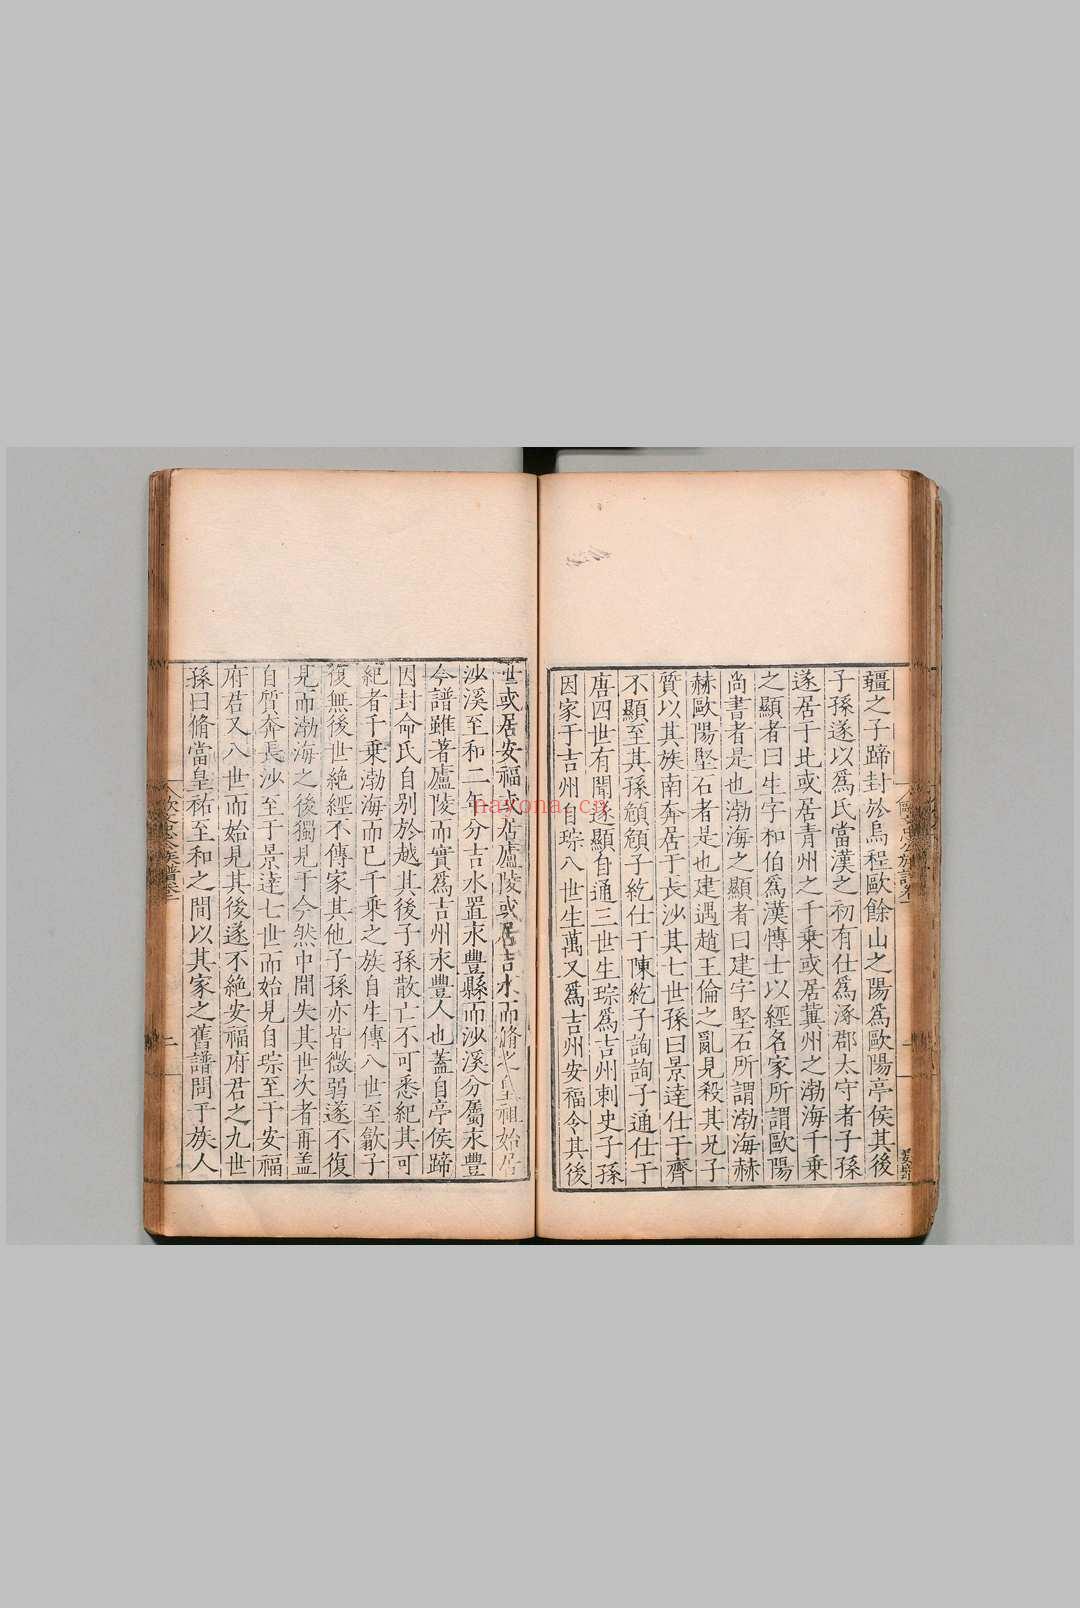 疆之子蹄封於烏程歐餘山之陽爲歐陽亭侯其後
子孫遂以爲氏當漢之初有仕爲涿郡太守者子孫
遂居于北或居青州之千乗或居冀州之渤海千乗
之顯者曰生字和伯爲漢博士以經名家所謂歐陽
尚書者是也渤海之顯者曰建字堅石所謂渤海赫
赫歐陽堅石者是也建遇趙王倫之亂見殺其兄子
質以其族南奔居于長沙其七世孫曰景達仕于齊
不顯至其孫頠頠子紇仕于陳紇子詢詢子通仕于
唐四世有聞遂顯自通三世生琮爲吉州刺史子孫
因家于吉州自琮八世生萬又爲吉州安福令其後
世或居安福或居廬陵或居吉水而脩之皇祖始居
沙溪至和二年分吉水置永豐縣而沙溪分屬永豐
今譜雖著廬陵而實爲吉州永豐人也蓋自亭侯蹄
因封命氏自别於越其後子孫散亡不可悉紀其可
紀者千乗渤海而已千乗之族自生傳八世至歙子
復無後世絶經不傳家其他子孫亦皆微弱遂不復
見而渤海之後獨見于今然中間失其世次者再蓋
自質奔長沙至于景達七世而始見自琮至于安福
府君又八世而始見其後遂不絶安福府君之九世
孫曰脩當皇祐至和之間以其家之舊譜問于族人
歐文忠公族譜卷
歐文忠公族譜卷
二
naxona.cn